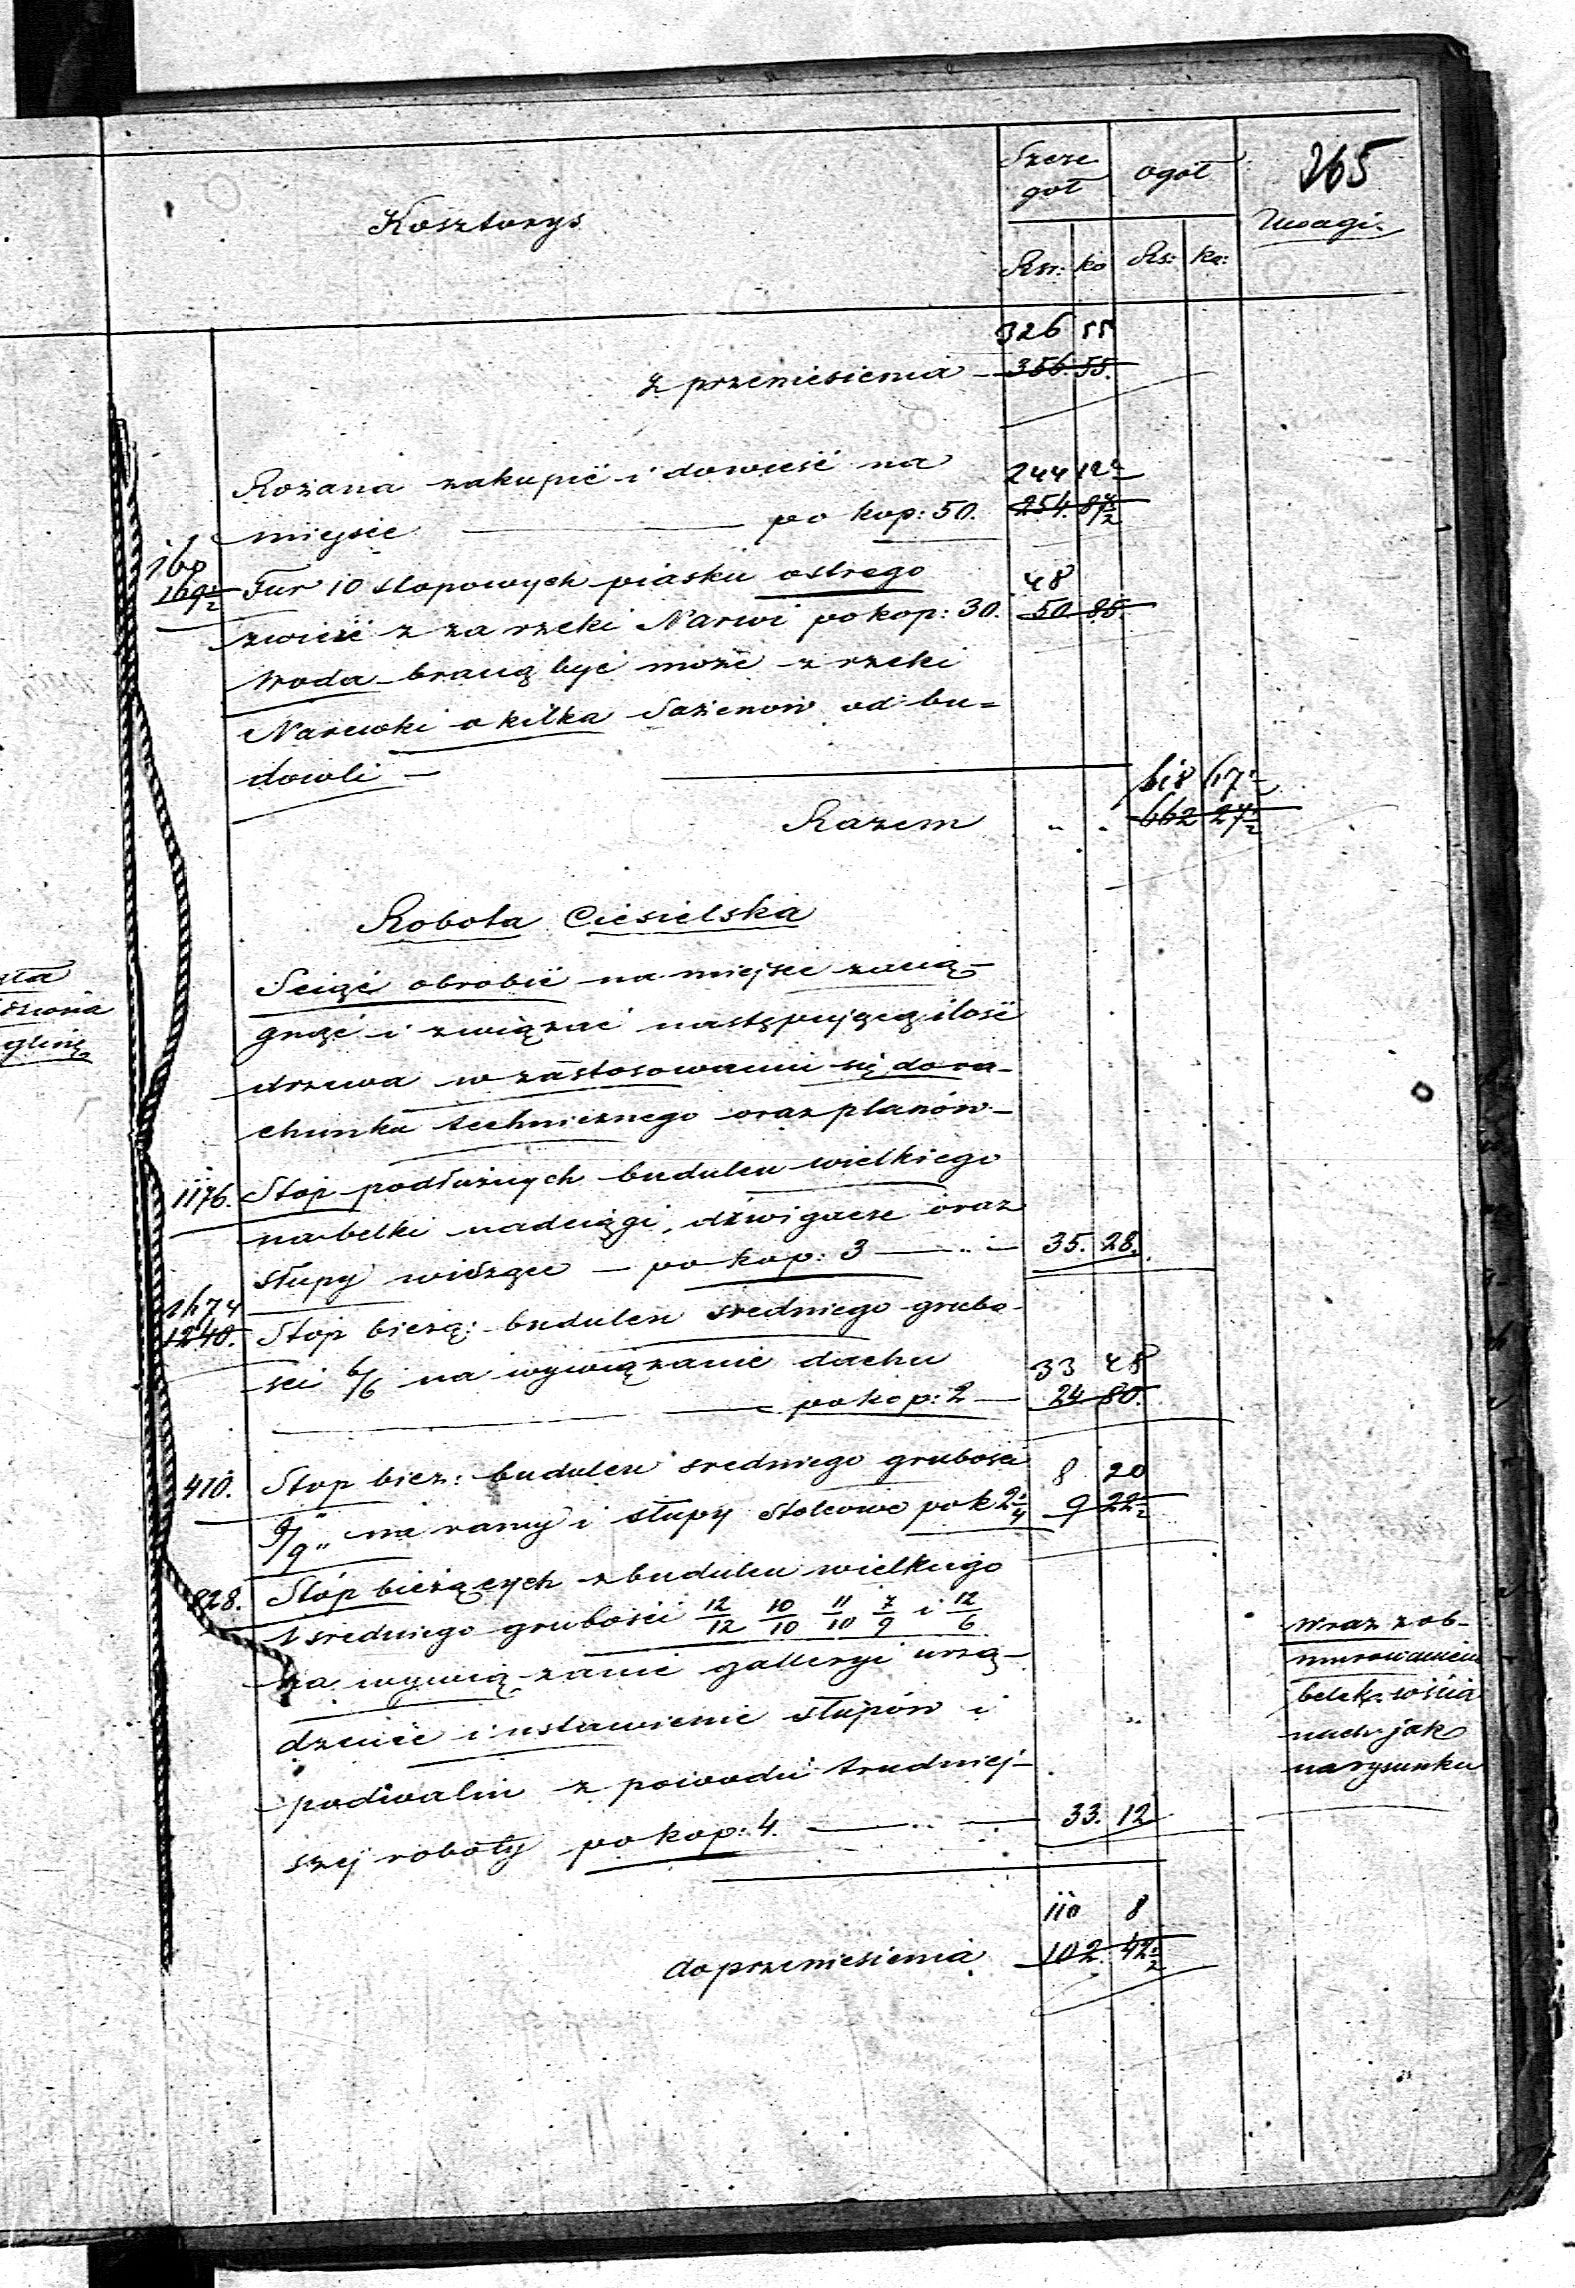 265
Kosztorys
Szcze
gół
ogół
Uwagi
Rsr: ko
Rs: ko:
326 55
z przeniesienia 356. 55.
Rożana zakupić i dowieść na
244 12
miejsce po kop: 50. 254. 87 1/2
160
169 1/2 Fur 10 stopowych piasku ostrego
48
zwieść z za rzeki Narwi po kop: 30. 50 85.
Woda braną być może z rzeki
Narewki o kilka Sażenow od bu=
dowli
618 67 1/2
Razem " " 662 27 1/2
Robota Ciesielska
Sciąć obrobić na miejsce zacią-
gnąć i związać następującą ilość
drzewa w zastosowaniu się do ra-
chunku technicznego oraz planów
1176. Stop podłużnych budulcu wielkiego
na belki nadciągi, dźwigacze oraz
słupy wiszące po kop: 3 35. 28.
1674
1240. Stóp bieżą: budulcu sredniego grubo-
sci 6/6 na wywiązanie dachu
33 48
po kop: 2 24 80.
410. Stop bież: budulcu sredniego grubosci
8 20
9/9" na ramy i słupy Stolcowe po k 2 1/4 9 22 1/2
828. Stóp bieżących z budulcu wielkiego
i sredniego grubości 12/12 10/10 11/10 7/9 i 12/6
na wywiązanie galleryi urzą-
dzenie i ustawienie słupów i
podwalin z powodu trudniej-
szej roboty po kop: 4. 33. 12
Wraz z ob-
murowaniem
belek w
jak
na rysunku
110 8
do przeniesienia 102. 42 1/2
glinę